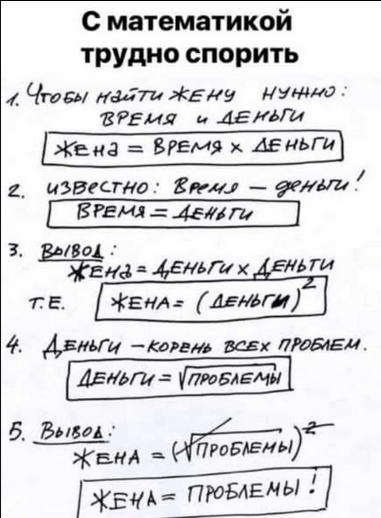 С математикой
трудно спорить
1. Чтобы найти жену нужно:
время и деньги
жена = время x деньги
2. известно: Время – деньги!
время = деньги
3. Вывод:
жена = деньги x деньги
т.е. жена = (деньги)²
4. Деньги – корень всех проблем.
деньги = √проблемы
5. Вывод:
жена = (√проблемы)²
жена = проблемы!